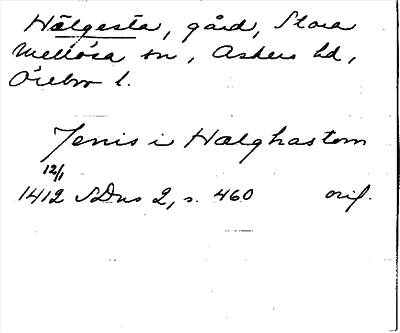 Hälgesta, gård, Stora
Mellösa sn, Askers hd,
Örebro l.
Jenis i Halghastom
12/1
1412 SDns 2, s. 460 orig.